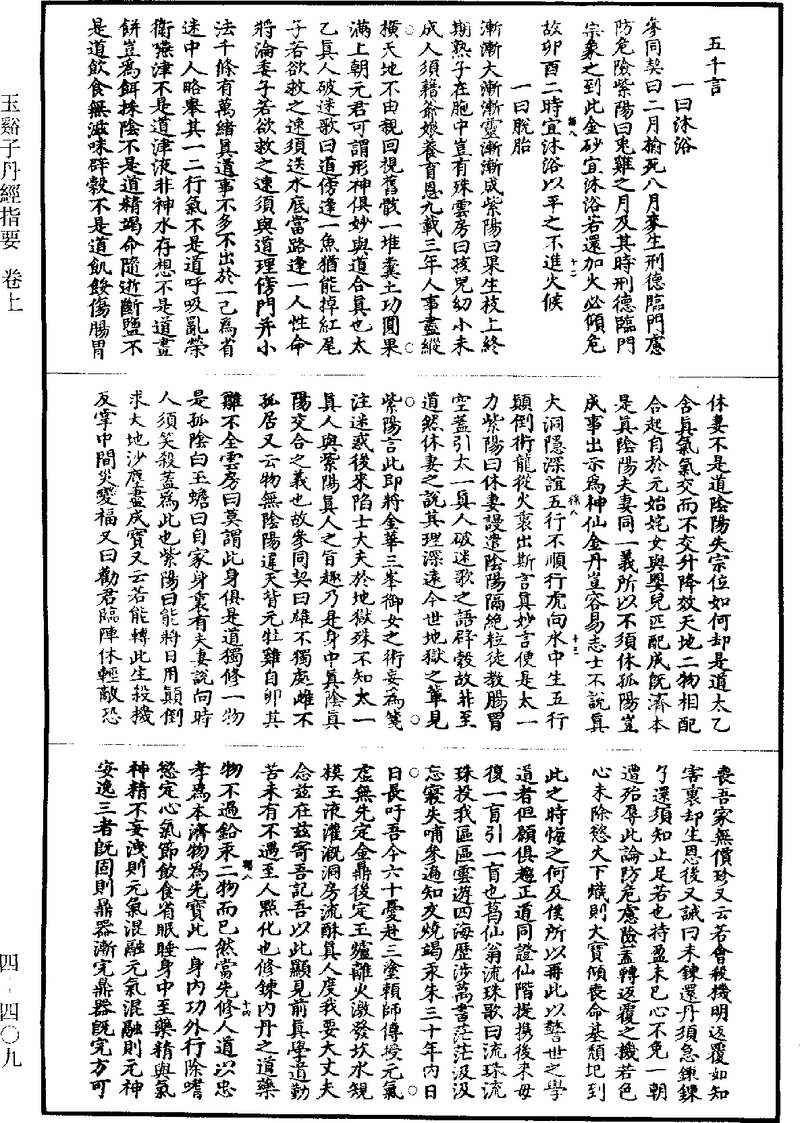 五千言
一曰沐浴
參同契曰二月榆死八月麥生刑德臨門慮
防危險紫陽曰兎雞之月及其時刑德臨門
宗象之到此金砂宜沐浴若還加火必傾危
故卯酉二時宜沐浴以平之不進火候
一曰脫胎
漸漸大漸漸靈漸漸成紫陽曰果生枝上終
期熟子在胞中豈有殊雲房曰孩兒幼小未
成人須藉爺娘養育恩九載三年人事盡縱
橫天地不由親回視舊骸一堆糞土功圓果
滿上朝元君可謂形神俱妙與道合真也太
乙真人破迷歌曰道傍逢一魚猶能掉紅尾
子若欲救之速須送水底當路逢一人性命
將淪委子若欲救之速須與道理傍門并小
法千條有萬緒真道事不多不出於一己為省
迷中人略舉其一二行氣不是道呼吸亂榮
衛嚥津不是道津液非神水存想不是道畫
餅豈為餌採陰不是道精竭命隨逝斷鹽不
是道飲食無滋味辟穀不是道飢餒傷腸胃
休妻不是道陰陽失宗位如何却是道太乙
含真氣氣交而不交升降效天地二物相配
合起自於元始姹女與嬰兒匹配成既濟本
是真陰陽夫妻同一義所以不須休孤陽豈
成事出示為神仙金丹豈容易志士不說真
大洞隱深誼五行不順行虎向水中生五行
顛倒術龍從火裏出斯言真妙言便是太一
力紫陽曰休妻謾遣陰陽隔絶粒徒教腸胃
空蓋引太一真人破迷歌之語辟穀故非至
道然休妻之說其理深遠今世地獄之輩見
紫陽言此即將金華三峯御女之術妄為箋
注迷惑後來陷士大夫於地獄殊不知太一
真人與紫陽真人之旨趣乃是身中真陰真
陽交合之義也故參同契曰雄不獨處雌不
孤居又云物無陰陽違天背元牡雞自卵其
雛不全雲房曰莫謂此身俱是道獨修一物
是孤陰白玉蟾曰自家身裏有夫妻說向時
人須笑殺蓋為此也紫陽曰能將日用顛倒
求大地沙塵盡成寶又云若能轉此生殺機
反掌中間災變福又曰勸君臨陣休輕敵恐
喪吾家無價珍又云若會殺機明返覆如知
害裏却生恩後又誠曰未鍊還丹須急鍊鍊
了還須知止足若也持盈未已心不免一朝
遭殆辱此論防危慮險蓋轉返覆之機若色
心未除慾火下熾則大寶傾喪命基頹圮到
此之時悔之何及僕所以再此以警世之學
道者但願俱趨正道同證仙階提携後來毋
復一盲引一盲也葛仙翁流珠歌曰流珠流
珠投我區區雲遊四海歷涉萬書茫茫汲汲
忘寢失哺參遍知友燒竭汞朱三十年內日
日長吁吾今六十憂赴三塗賴師傳授元氣
虛無先定金鼎後定玉爐離火激發坎水規
模玉液灌溉洞房流酥真人度我要大丈夫
念兹在兹寄吾記吾以此顯見前真學道勤
苦未有不遇至人點化也修鍊內丹之道藥
物不過鉛汞二物而已然當先修人道以忠
孝為本濟物為先寶此一身內功外行除嗜
慾定心氣節飲食省眠睡身中至藥精與氣
神精不妄洩則元氣混融元氣混融則元神
安逸三者既固則鼎器漸完鼎器既完方可
玉谿子丹經指要　卷上
四-四〇九